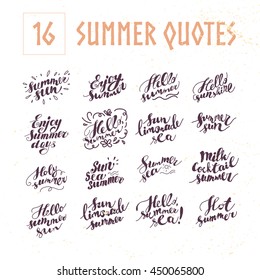 16 SUMMER QUOTES
Summer
sun
Enjoy
summer
Hello,
summer
Hello
sunshine
Enjoy
Summer
days
Hello,
summer
Sun
limonade
sea
Summer
sun
Holy
summer
Sun
sea
summer
Summer
sea
Milk
cocktail
summer
Hello
summer
sun
Sun
limonade
sea
Hello,
sea!
Hot
summer
shutterstock
IMAGE ID: 450065800
www.shutterstock.com